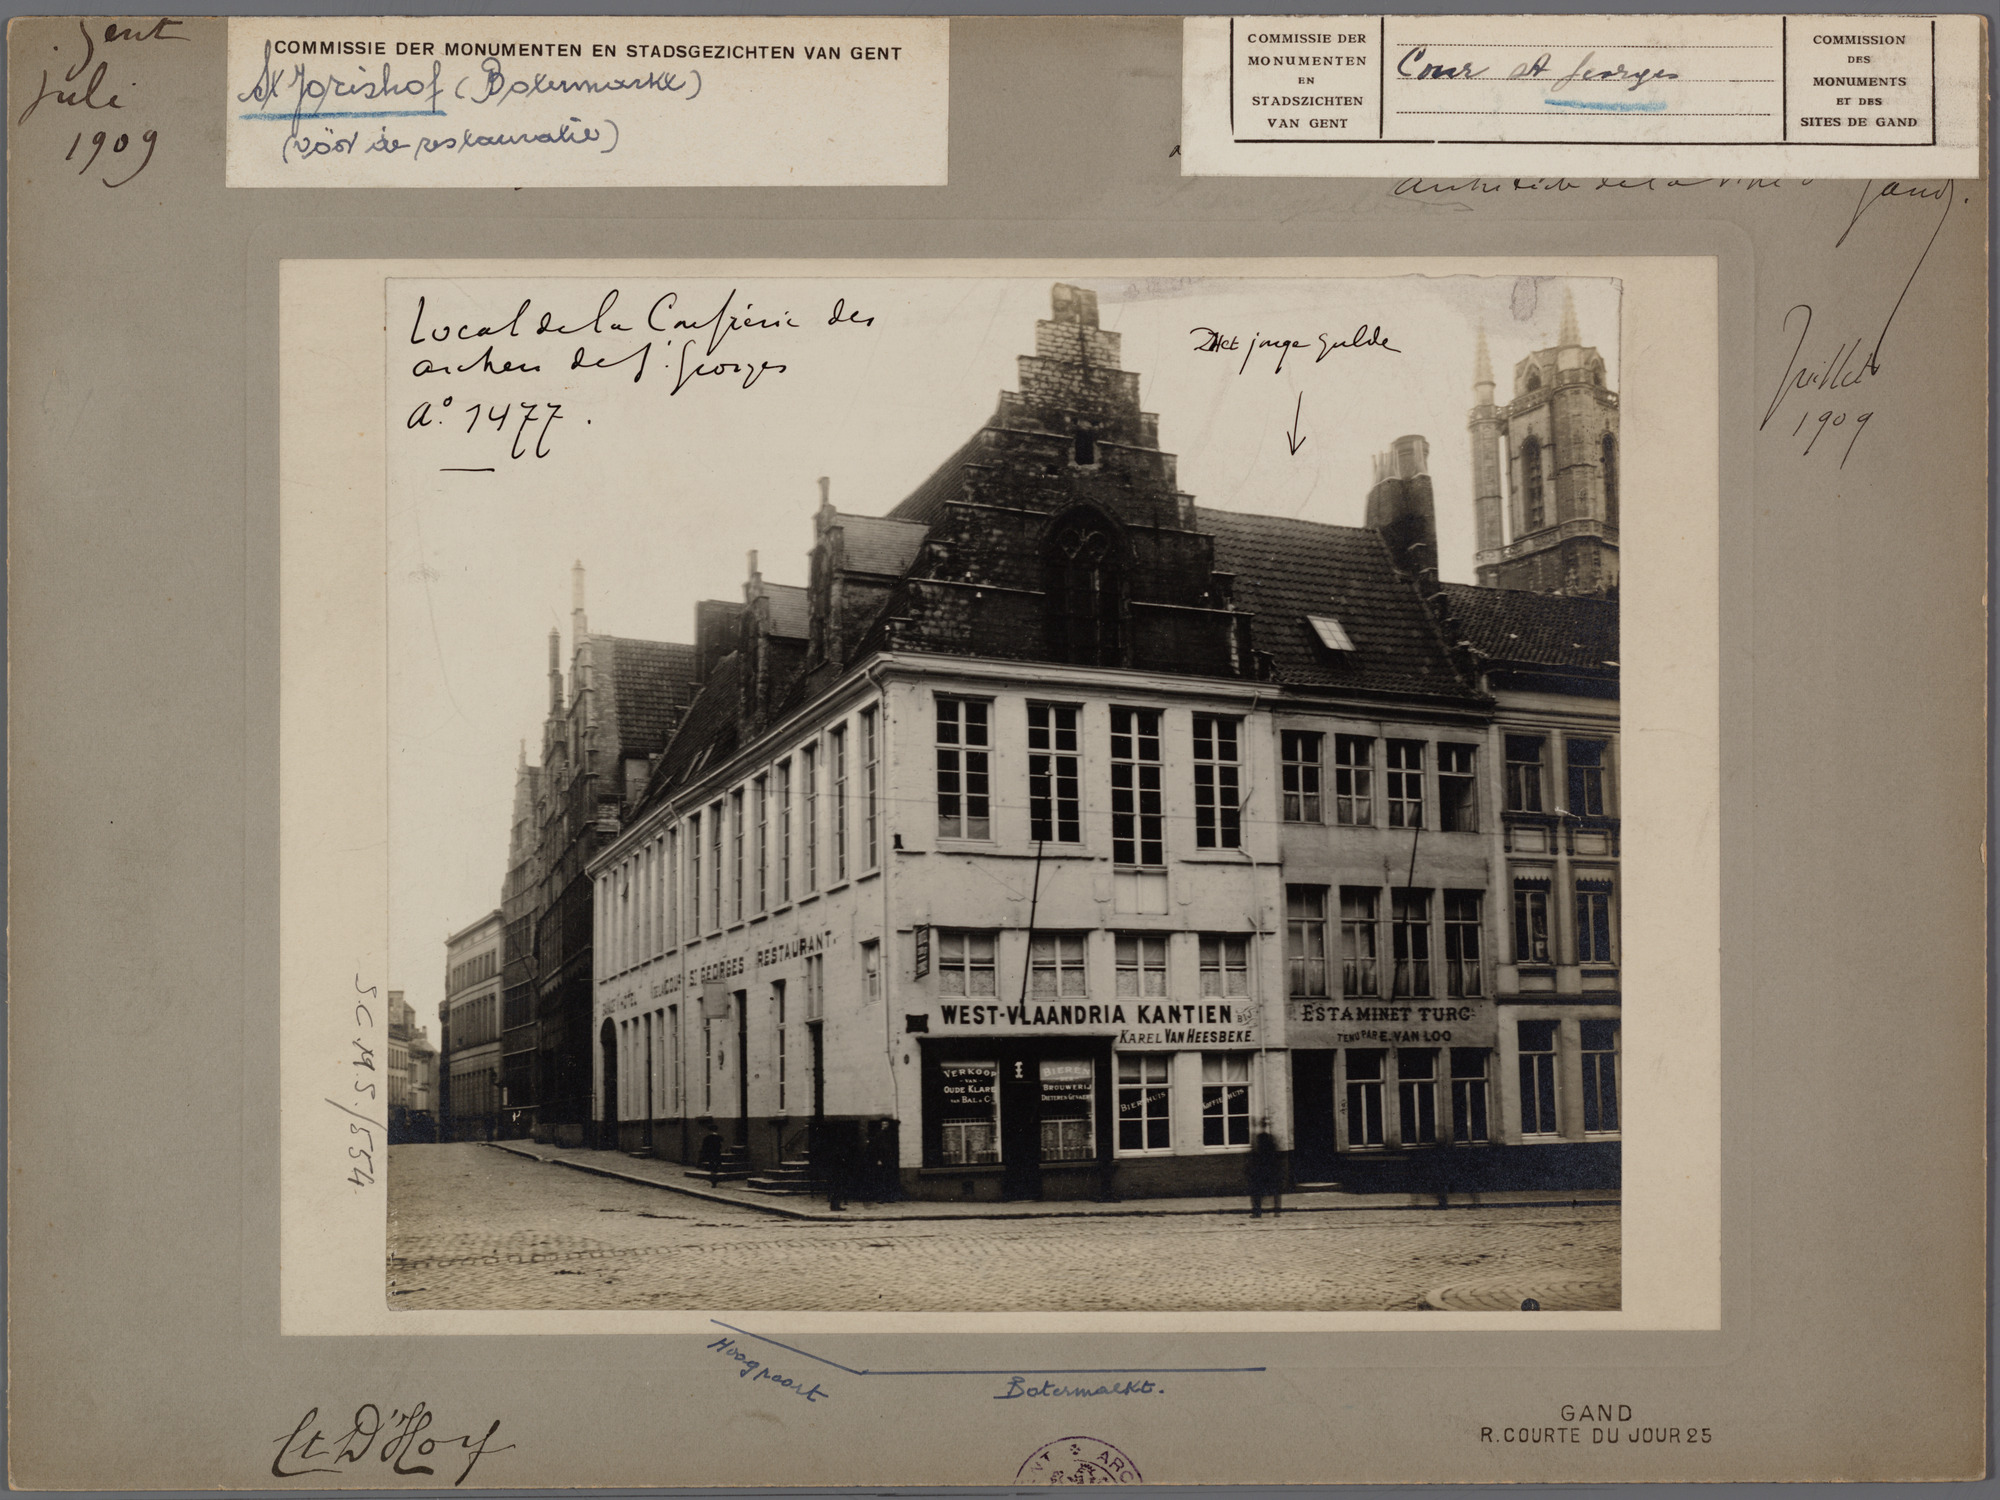 Gent
juli
1909
COMMISSIE DER MONUMENTEN EN STADSGEZICHTEN VAN GENT
St Jorishof (Botermarkt)
(vóór de restauratie)
COMMISSIE DER
MONUMENTEN
EN
STADSZICHTEN
VAN GENT
Cour St Georges
COMMISSION
DES
MONUMENTS
ET DES
SITES DE GAND
Architecte de la ville Gand.
Juillet
1909
Local de la Confrérie des
archers de St. Georges
A° 1477.
Het jonge gulde
HOTEL COUR ST GEORGES RESTAURANT.
WEST-VLAANDRIA KANTIEN
BIJ
KAREL VAN HEESBEKE.
VERKOOP
VAN
OUDE KLARE
VAN BAL & C
BIEREN
BROUWERIJ
BIERHUIS
KOFFIEHUIS
ESTAMINET TURC
TENU PAR E. VAN LOO
S.C.M.S./554
Hoogpoort
Botermarkt.
Ct D'Hoy
GAND
R. COURTE DU JOUR 25